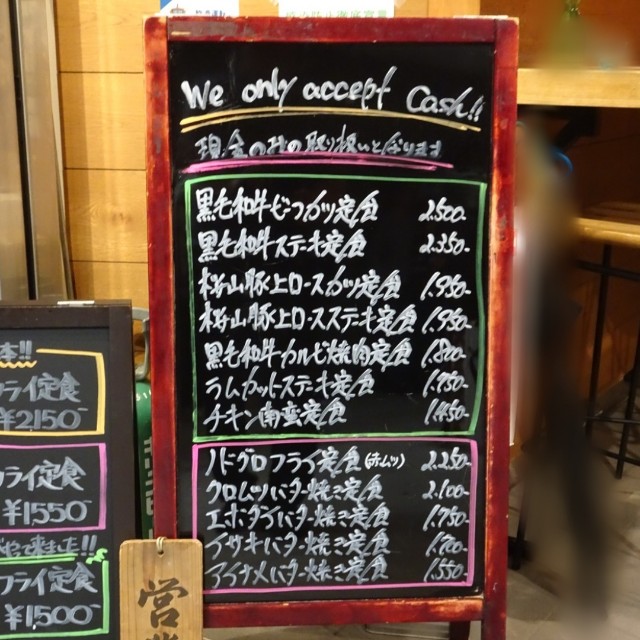 We only accept Cash!!
現金のみの取り扱いとなります
黒毛和牛ビーフカツ定食 2.500-
黒毛和牛ステーキ定食 2.350-
桜山豚上ロースカツ定食 1.950-
桜山豚上ロースステーキ定食 1.950-
黒毛和牛カルビ焼肉定食 1.800-
ラムカットステーキ定食
チキン南蛮定食 1.450-
ノドグロフライ定食(赤ムツ) 2.250-
クロムツバター焼き定食 2.100-
エボダイバター焼き定食 1.750-
イサキバター焼き定食
アイナメバター焼き定食 1.550-
本!!
フライ定食
¥2150-
フライ定食
¥1550-
て来ました!!
フライ定食
¥1,500-
営